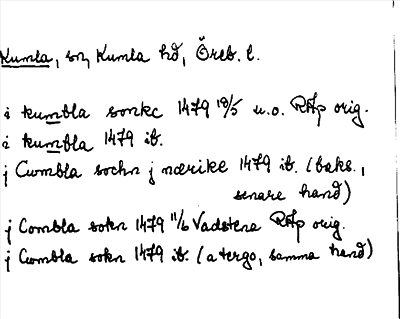 Kumla, sn, Kumla hd, Öreb. l.
i kumbla sonkc 1479 10/5 u.o. RAp orig.
i kumbla 1479 ib.
j Cwmbla sochn j nærike 1479 ib. (baks.,
senare hand)
j Combla sokn 1479 11/6 Vadstena RAp orig.
j Cwmbla sokn 1479 ib. (a tergo, samma hand)